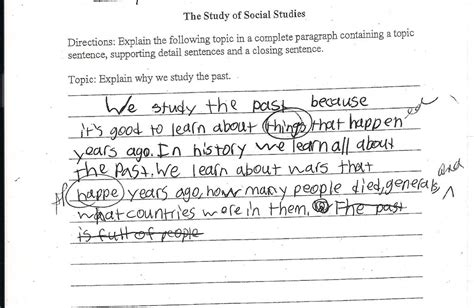 The Study of Social Studies
Directions: Explain the following topic in a complete paragraph containing a topic
sentence, supporting detail sentences and a closing sentence.
Topic: Explain why we study the past.
We study the past because
it's good to learn about things that happened
years ago. In history we learn all about
the past. We learn about wars that
happe years ago, how many people died, generals, and
what countries were in them. The past
is full of people